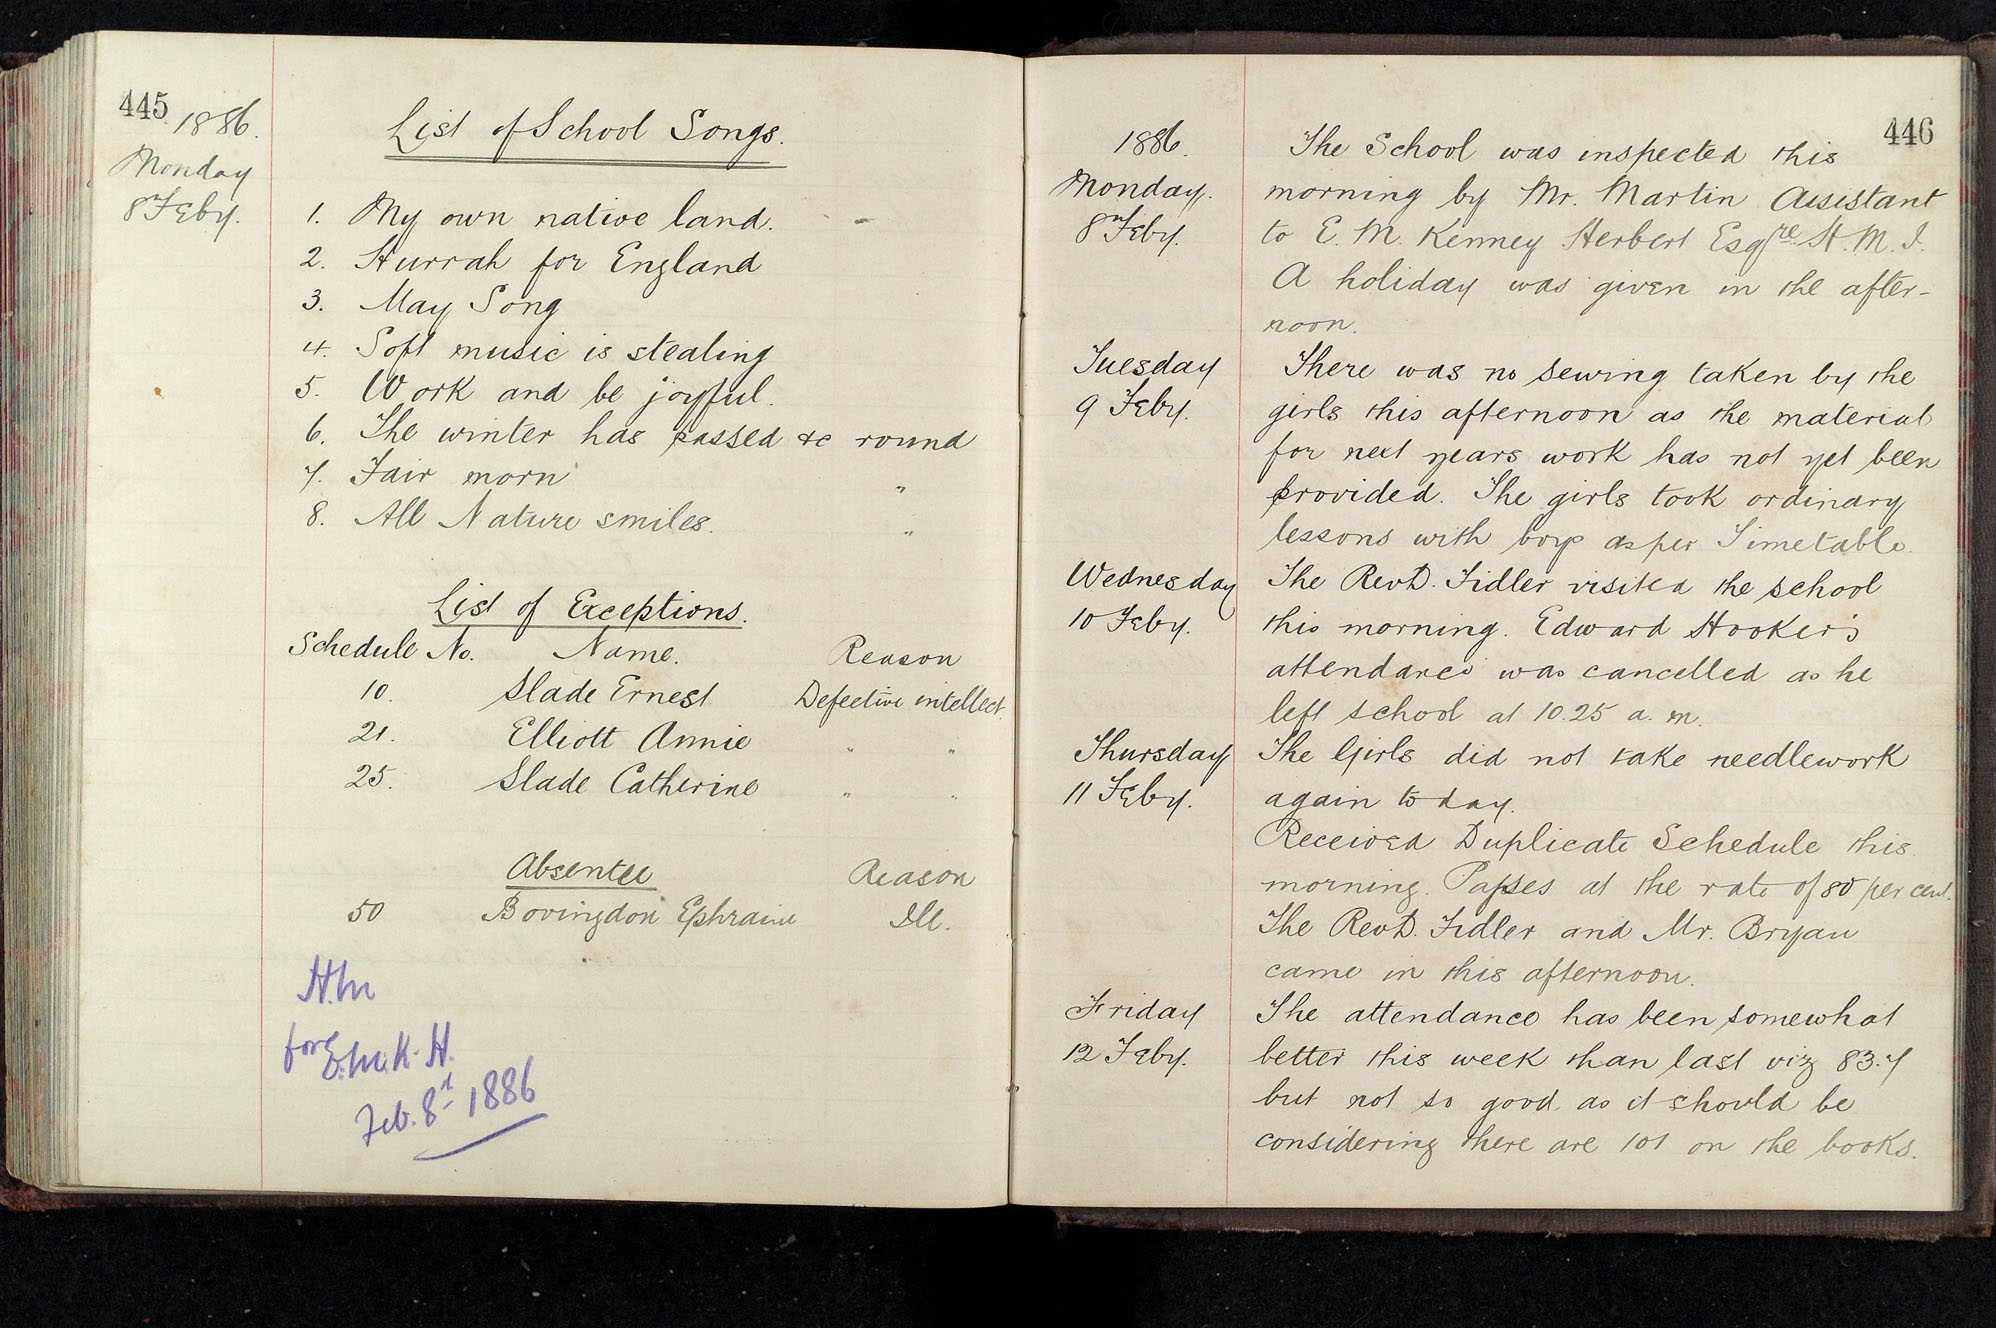 445
1886.
Monday
8 Feby.
List of School Songs.
1. My own native land. -
2. Hurrah for England
3. May Song
4. Soft music is stealing
5. Work and be joyful.
6. The winter has passed &c round
7. Fair morn "
8. All Nature smiles. "
List of Exceptions.
Schedule No. Name. Reason
10. Slade Ernest Defective intellect.
21. Elliott Annie " "
25. Slade Catherine " "
Absentee Reason
50 Bovingdon Ephraim Ill.
H.M
for E.M.K-H.
Feb. 8th 1886
446
1886.
Monday.
8 Feby.
The School was inspected this
morning by Mr. Martin Assistant
to E. M. Kenney Herbert Esqre H. M. I.
A holiday was given in the after-
noon.
Tuesday
9 Feby.
There was no sewing taken by the
girls this afternoon as the material
for next years work has not yet been
provided. The girls took ordinary
lessons with boys as per Timetable.
Wednesday
10 Feby.
The Revd. Fidler visited the school
this morning. Edward Hooker's
attendance was cancelled as he
left school at 10.25 a.m.
Thursday
11 Feby.
The Girls did not take needlework
again to day.
Received Duplicate Schedule this
morning. Passes at the rate of 80 per cent.
The Revd. Fidler and Mr. Bryan
came in this afternoon.
Friday
12 Feby.
The attendance has been somewhat
better this week than last viz 83.7
but not so good as it should be
considering there are 101 on the books.